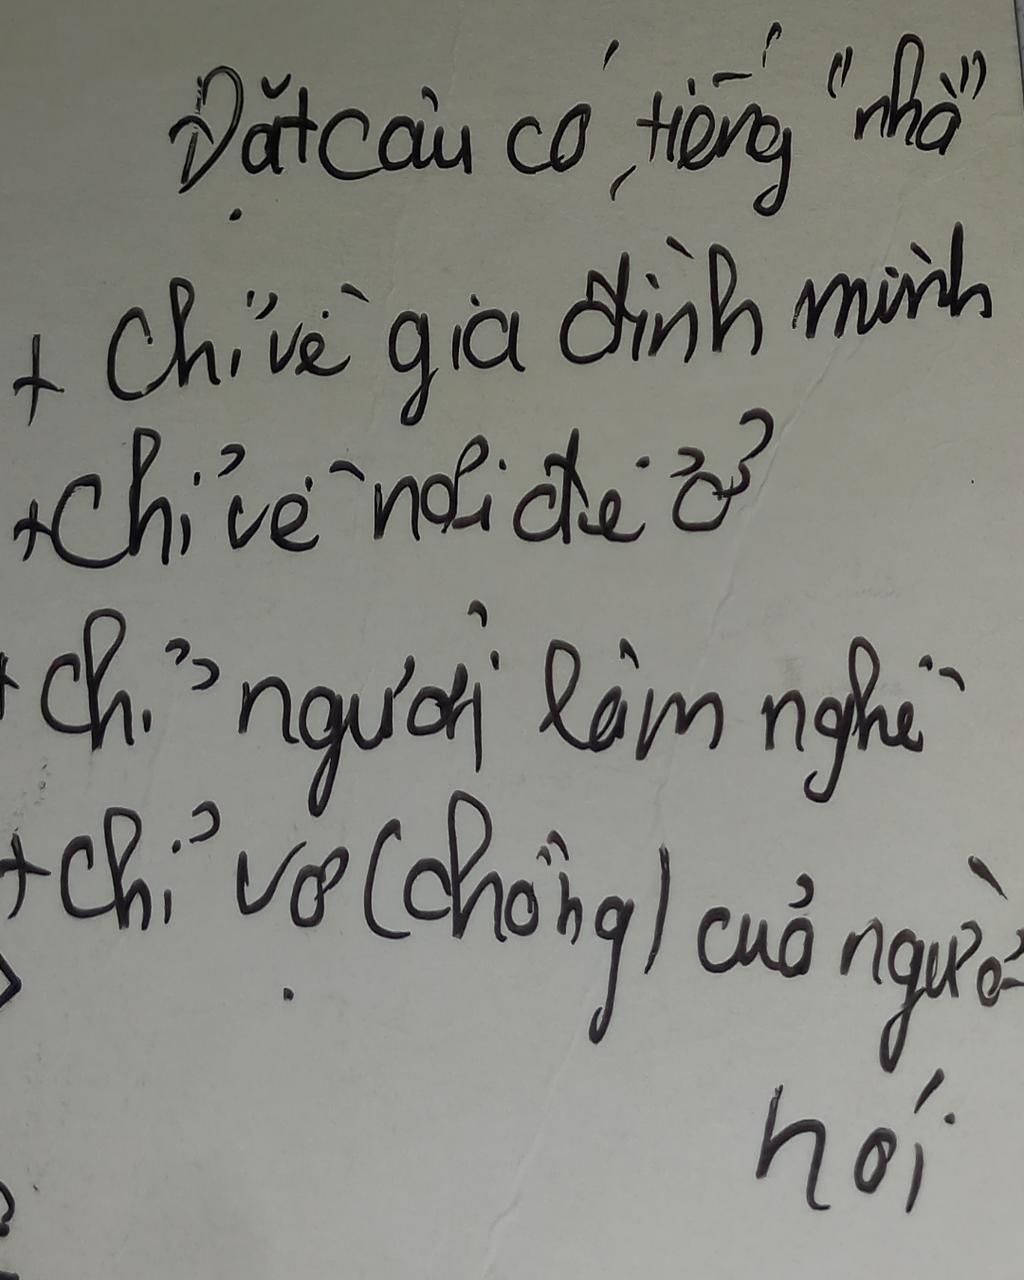 Đặt câu có tiếng "nhà"
+ Chỉ về gia đình mình
+ Chỉ về nơi để ở
+ Chỉ người làm nghề
+ Chỉ vợ (chồng) của người
nói